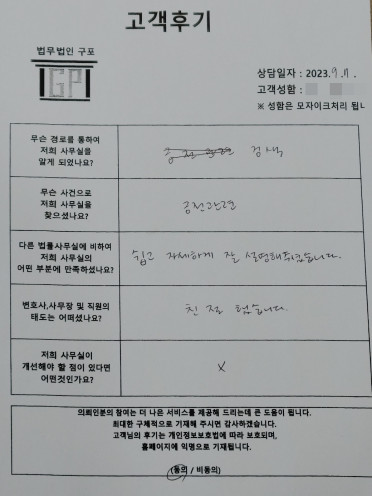 고객후기
법무법인 구포
GP
상담일자 : 2023. 9. 11.
고객성함 :
※ 성함은 모자이크처리 됩니
무슨 경로를 통하여
저희 사무실을
알게 되었나요?
검색
무슨 사건으로
저희 사무실을
찾으셨나요?
공천관련
다른 법률사무실에 비하여
저희 사무실의
어떤 부분에 만족하셨나요?
쉽고 자세하게 잘 설명해주셨습니다.
변호사,사무장 및 직원의
태도는 어떠셨나요?
친절했습니다.
저희 사무실이
개선해야 할 점이 있다면
어떤것인가요?
X
의뢰인분의 참여는 더 나은 서비스를 제공해 드리는데 큰 도움이 됩니다.
최대한 구체적으로 기재해 주시면 감사하겠습니다.
고객님의 후기는 개인정보보호법에 따라 보호되며,
홈페이지에 익명으로 기재됩니다.
(동의 / 비동의)